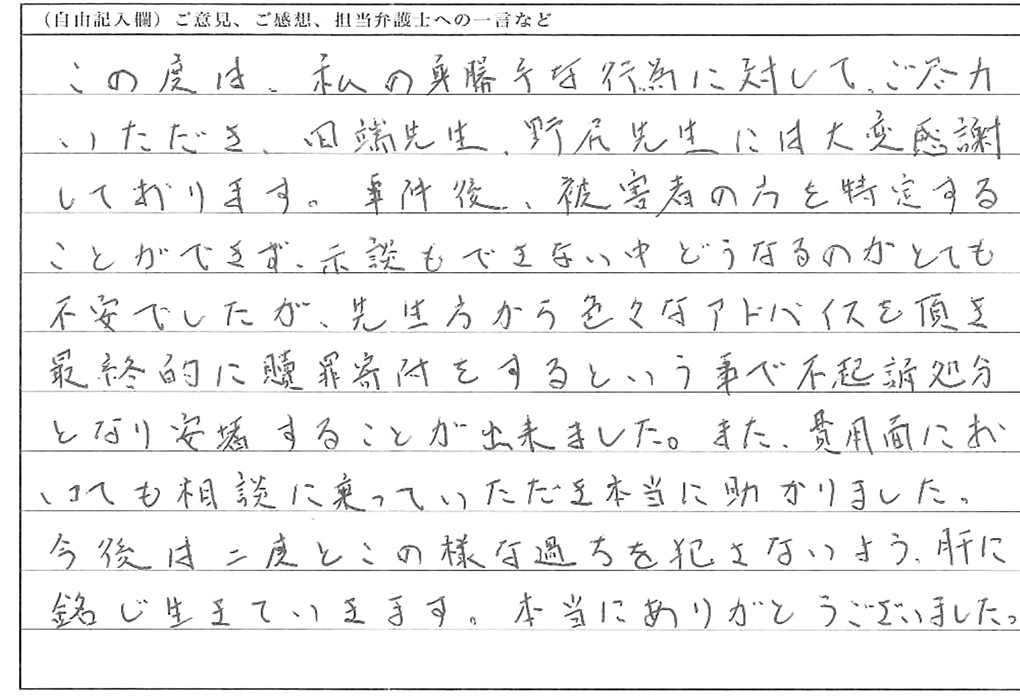 （自由記入欄）ご意見、ご感想、担当弁護士への一言など
この度は、私の身勝手な行為に対して、ご尽力
いただき、田端先生、野尻先生には大変感謝
しております。事件後、被害者の方を特定する
ことができず、示談もできない中どうなるのかとても
不安でしたが、先生方から色々なアドバイスを頂き
最終的に贖罪寄附をするという事で不起訴処分
となり安堵することが出来ました。また、費用面にお
いても相談に乗っていただき本当に助かりました。
今後は二度とこの様な過ちを犯さないよう、肝に
銘じ生きていきます。本当にありがとうございました。